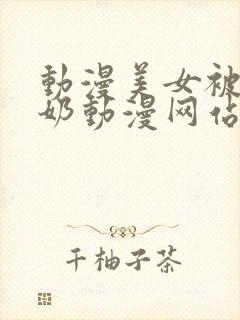 動漫美女被
奶動漫网佔
千柚子茶